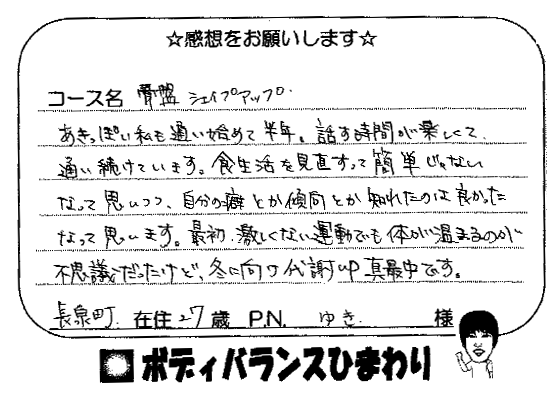 ☆感想をお願いします☆
コース名 骨盤シェイプアップ
あきっぽい私も通い始めて半年。話す時間が楽しくて、
通い続けています。食生活を見直すって簡単じゃない
なって思いつつ、自分の癖とか傾向とか知れたのは良かった
なって思います。最初、激しくない運動でも体が温まるのが
不思議だったけど、冬に向け代謝up真最中です。
長泉町 在住 27歳 P.N. ゆき 様
ボディバランスひまわり